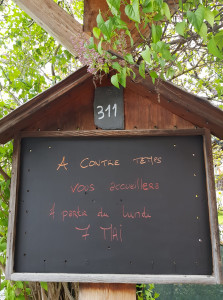 311
A CONTRE TEMPS
VOUS accueillera
à partir du lundi
7 MAI